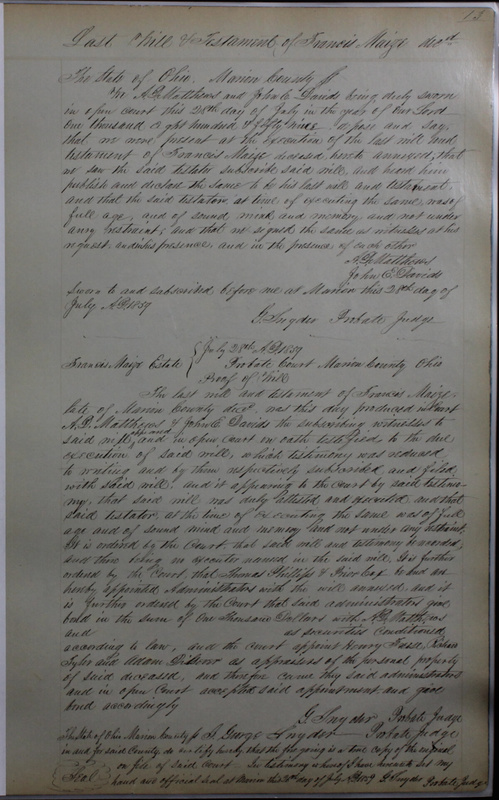 13
Last Will & Testament of Francis Maize decd
The State of Ohio, Marion County ss
We A.P. Matthews and John E. Davids being duly sworn
in open court this 28th day of July in the year of our Lord
One thousand eight hundred & fifty nine depose and say,
that we were present at the execution of the last will and
testament of Francis Maize deceased hereto annexed, that
we saw the said testator subscribe said will, and heard him
publish and declare the same to be his last will and testament,
and that the said testator at time of executing the same was of
full age, and of sound mind and memory and not under
any restraint, and that we signed the same as witnesses at his
request, and in his presence, and in the presence of each other
Matthews
John E. Davids
Sworn to and subscribed before me at Marion this 28th day of
July AD 1859
G. Snyder Probate Judge
July 28th AD 1859
Francis Maize Estate Probate Court Marion County, Ohio
Proof of Will
The last will and testament of Francis Maize
late of Marion County decd, was this day produced in Court
Matthews & John E. Davids the subscribing witnesses to
said will, and in open court on oath testified to the due
execution of said will, which testimony was reduced
to writing and by them respectively subscribed and filed
with said will. and it appearing to the court by said testimo-
ny, that said will was duly attested and executed, and that
said testator, at the time of executing the same was of full
age and of sound mind and memory and not under any restraint,
It is ordered by the Court, that said will and testimony be recorded,
and there being no executor named in the said will, It is further
ordered by the Court, that Thomas Phillips & Prior Cox be and are
hereby appointed Administrators with the will annexed and it
is further ordered by the Court that said administrators give
bond in the sum of One Thousand Dollars with Matthews
and as securities conditioned
according to law, and the court appoint Henry
Tyler and Adam as appraisers of the personal property
of said deceased, and therefore came they said administrators
and in open Court accepted said appointment and give
bond accordingly
G. Snyder, Probate Judge
The State of Ohio Marion County ss I, George Snyder Probate Judge
in and for said County do certify hereby that the foregoing is a true copy of the original
on file of said Court In testimony whereof I have hereunto set my
Seal hand and official seal at Marion this 28th day of July AD 1859 G. Snyder Probate Judge